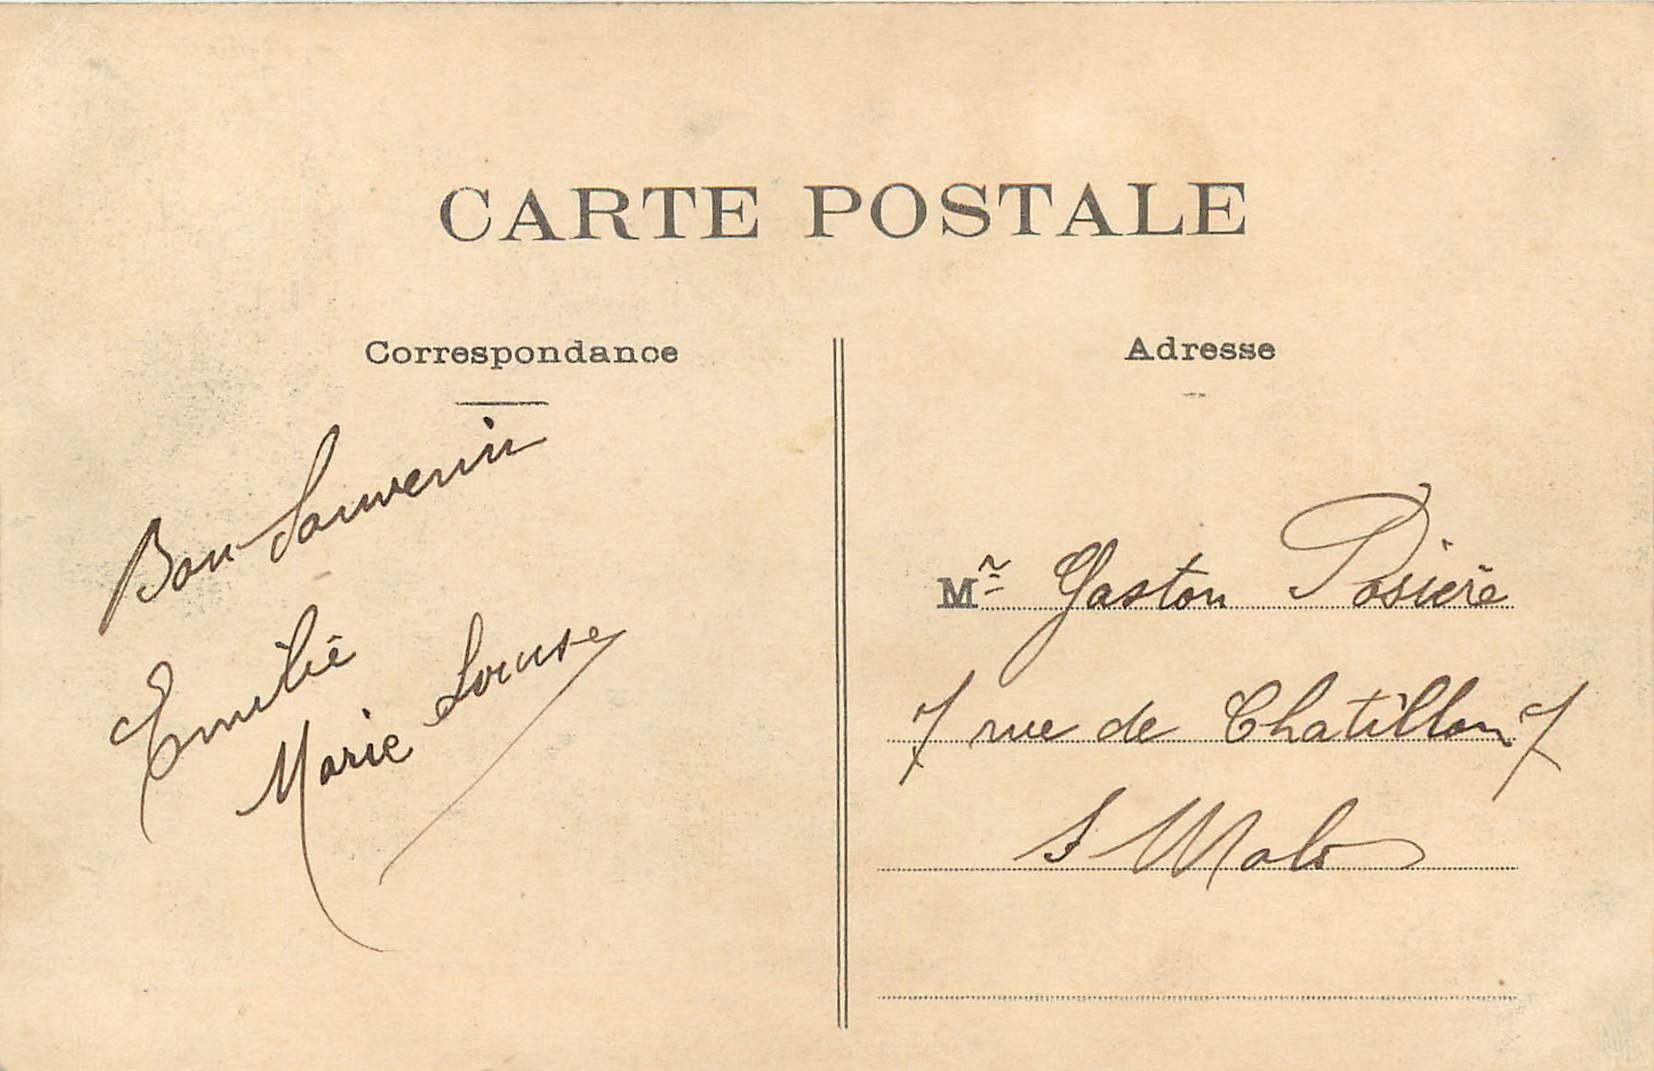 CARTE POSTALE
Correspondance
Bon Souvenir
Emilie
Marie Louise
Adresse
Mr Gaston Posière
7 rue de Chatillon 7
S Malo